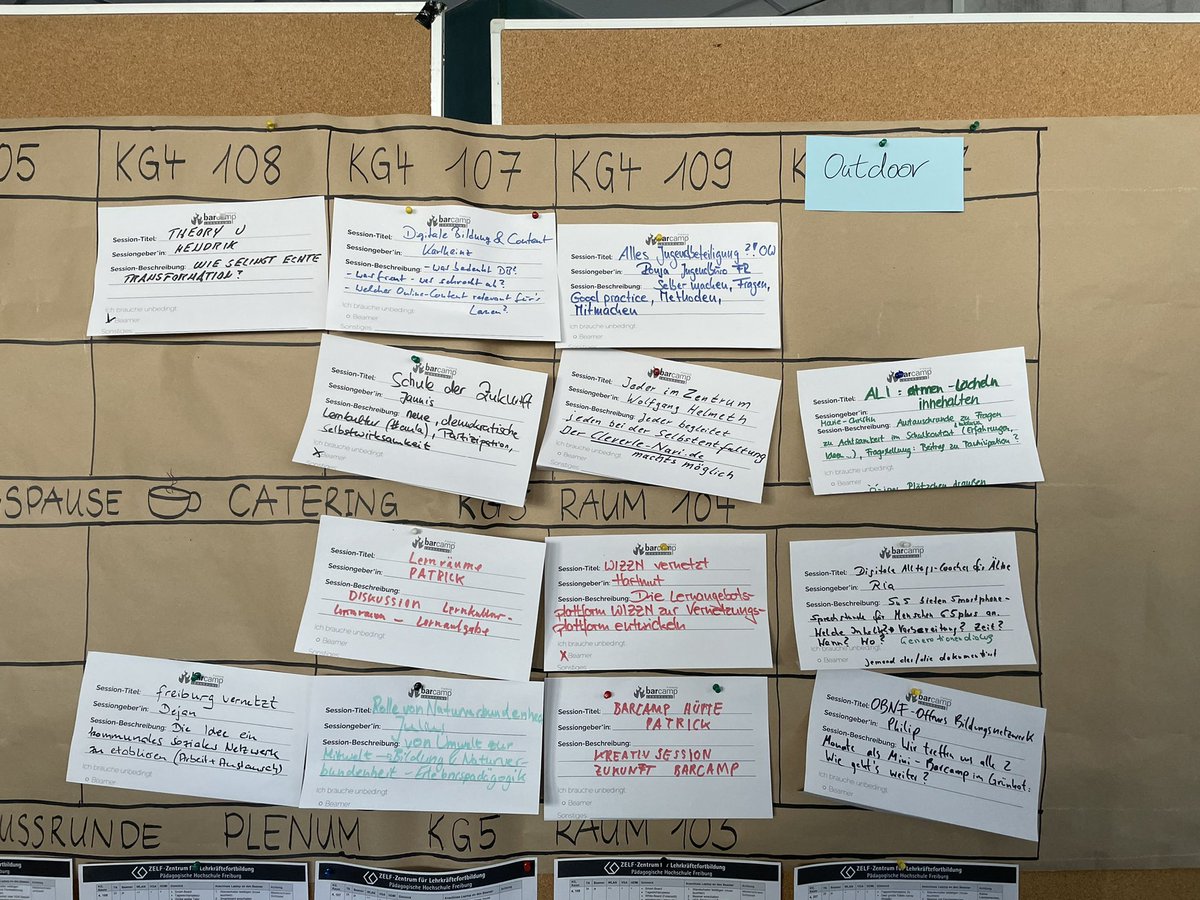 05
KG4 108
KG4 107
KG4 109
Outdoor
barcamp
Session-Titel: THEORY U
Sessiongeber*in: HENDRIK
Session-Beschreibung: WIE GELINGT ECHTE
TRANSFORMATION?
Ich brauche unbedingt:
Beamer
barcamp
Session-Titel: Digitale Bildung & Content
Sessiongeber*in: Karlheinz
Session-Beschreibung: - was bedeutet DB?
- was fixt an? was schreckt ab?
- welcher Online-Content relevant für's
Lernen?
Ich brauche unbedingt:
Beamer
Sonstiges
barcamp
Session-Titel: Alles Jugendbeteiligung ?!? OW
Sessiongeber*in: Jugendbüro FR
Session-Beschreibung: Selber machen, Fragen,
Good practice, Methoden,
Mitmachen
Ich brauche unbedingt:
Beamer
barcamp
Session-Titel: Schule der Zukunft
Sessiongeber*in: Jannis
Session-Beschreibung: neue, demokratische
Lernkultur (#aula), Partizipation,
Selbstwirksamkeit
Ich brauche unbedingt:
Beamer
barcamp
Session-Titel: Jeder im Zentrum
Sessiongeber*in: Wolfgang Helmeth
Session-Beschreibung: Jeder begleitet
sieben bei der Selbstentfaltung
Der Cleverle-Navi.de
machts möglich
Ich brauche unbedingt:
Beamer
barcamp
Session-Titel: ALI: atmen - lächeln
innehalten
Sessiongeber*in: Marie-Christin
Session-Beschreibung: Austauschrunde zu Fragen
zu Achtsamkeit im Schulkontext (Erfahrungen,
Ideen...), Fragestellung: Beitrag zu Partizipation?
Ich brauche unbedingt:
Beamer
Plätzchen draußen
SPAUSE CATERING KG5 RAUM 104
barcamp
Session-Titel: Lernräume
Sessiongeber*in: PATRICK
Session-Beschreibung:
DISKUSSION Lernkultur-
Lernraum - Lernaufgabe
Ich brauche unbedingt:
Beamer
Sonstiges
barcamp
Session-Titel: WIZZN vernetzt
Sessiongeber*in: Hartmut
Session-Beschreibung: Die Lernangebots-
plattform WIZZN zur Vernetzungs-
plattform entwickeln
Ich brauche unbedingt:
Beamer
Sonstiges
barcamp
Session-Titel: Digitale Alltags-Coaches für Älte
Sessiongeber*in: Ria
Session-Beschreibung: SuS bieten Smartphone-
Sprechstunde für Menschen 65plus an.
Welche Inhalte? Vorbereitung? Zeit?
Wann? Wo? Generationendialog
Beamer
jemand der/die dokumentiert
barcamp
Session-Titel: freiburg vernetzt
Sessiongeber*in: Dejan
Session-Beschreibung: Die Idee ein
kommunales soziales Netzwerk
zu etablieren (Arbeit + Austausch)
Ich brauche unbedingt:
Beamer
barcamp
Session-Titel: Rolle von Naturverbundenhei
Sessiongeber*in:
Session-Beschreibung: von Umwelt zur
Mitwelt - Bildung & Naturver-
bundenheit - Erlebnispädagogik
Ich brauche unbedingt:
Beamer
barcamp
Session-Titel: BARCAMP HÜPFE
Sessiongeber*in: PATRICK
Session-Beschreibung:
KREATIV SESSION
ZUKUNFT BARCAMP
Ich brauche unbedingt:
Beamer
barcamp
Session-Titel: OBNF - Offenes Bildungsnetzwerk
Sessiongeber*in: Philip
Session-Beschreibung: Wir treffen uns alle 2
Monate als Mini-Barcamp im Grünhof:
Wie geht's weiter?
Ich brauche unbedingt:
Beamer
USSRUNDE PLENUM KG5 RAUM 103
ZELF-Zentrum für Lehrkräftefortbildung
Pädagogische Hochschule Freiburg
ZELF-Zentrum für Lehrkräftefortbildung
Pädagogische Hochschule Freiburg
ZELF-Zentrum für Lehrkräftefortbildung
Pädagogische Hochschule Freiburg
ZELF-Zentrum für Lehrkräftefortbildung
Pädagogische Hochschule Freiburg